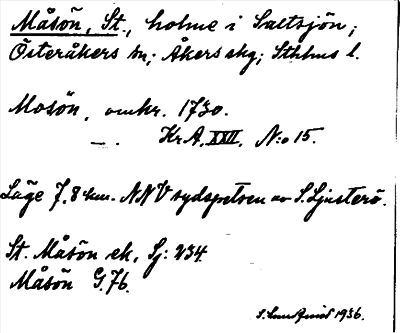 Måsön, St., holme i Saltsjön;
Österåkers sn; Åkers skg; Sthlms l.
Mosön, omkr. 1730.
— . KrA, XXII, N:o 15.
Läge 7,8 km. NNV sydspetsen av S. Ljusterö.
St. Måsön ek, Sj: 234.
Måsön G.76.
1936.